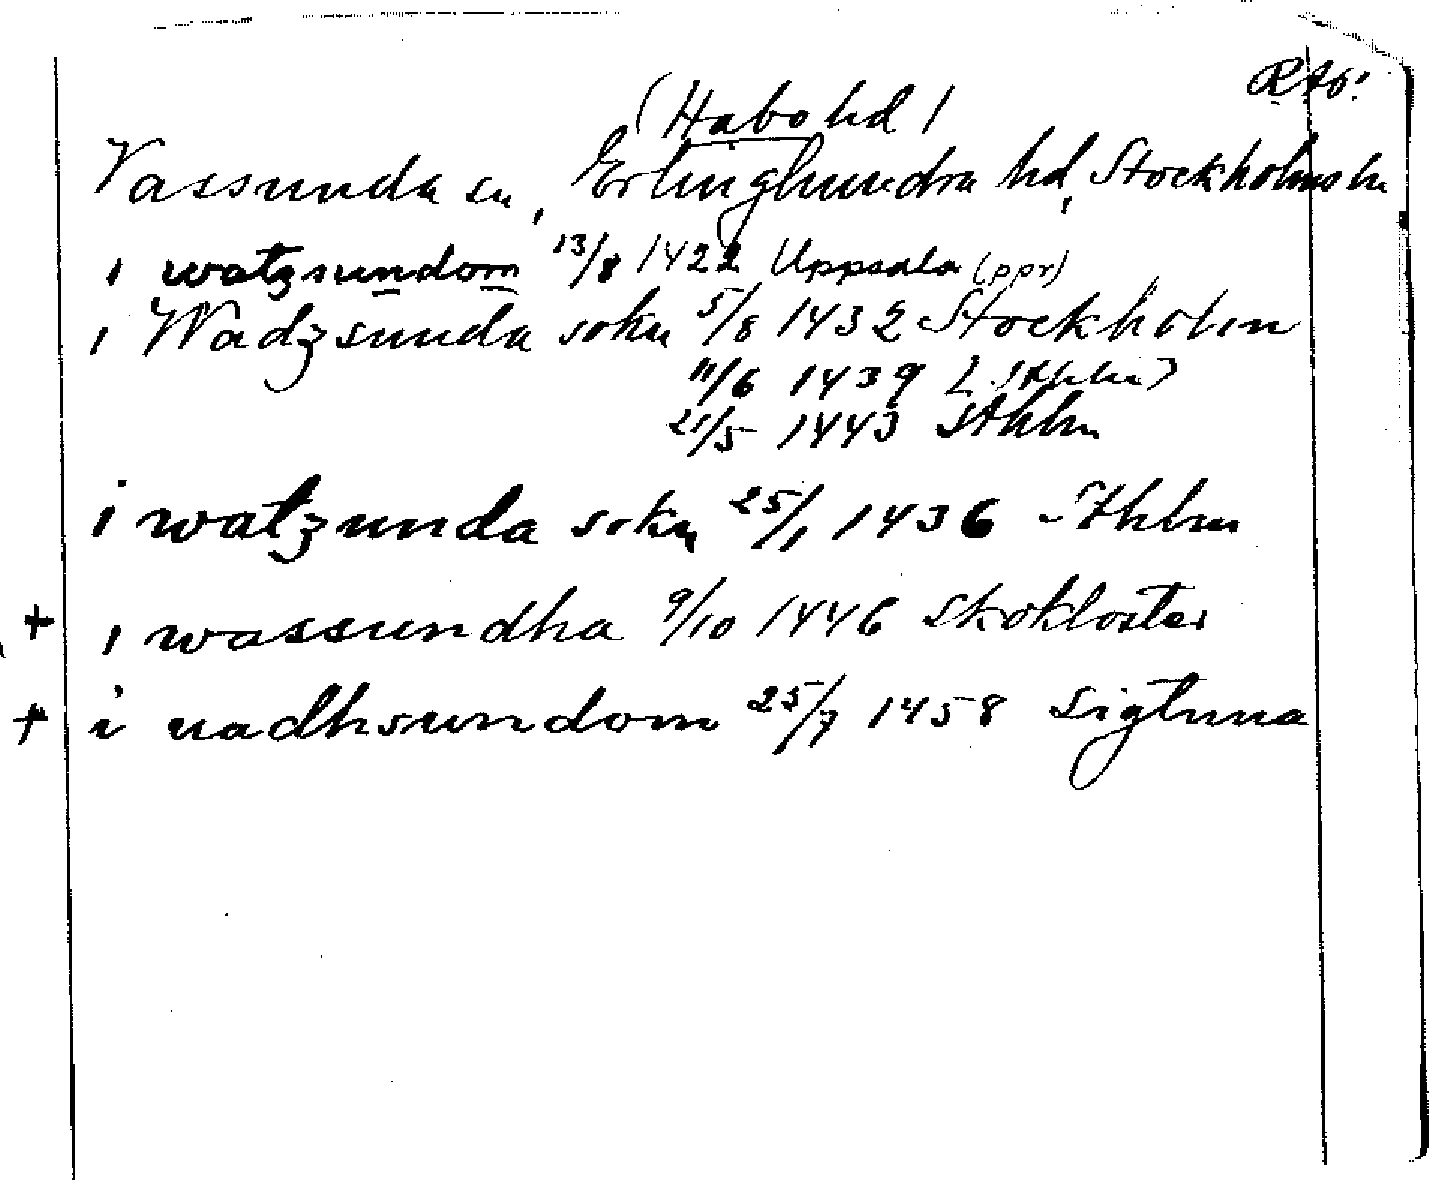 RAp.
(Habo hd)
Vassunda sn, Erlinghundra hd, Stockholms län
i watzsundom 13/8 1422 Uppsala (ppr)
i Wadzsunda sokn 5/8 1432 Stockholm
11/6 1439 [Sthlm]
21/5 1443 Sthlm
i watzunda sokn 25/1 1436 Sthlm
+ i wassundha 9/10 1446 Skokloster
+ i uadhsundom 25/7 1458 Sigtuna